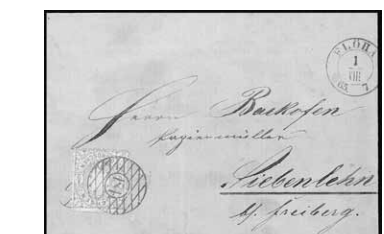 FLÖHA
1
VIII
65 7
Herrn Backofen
Papiermüller
Siebenlehn
b/. Freiberg.